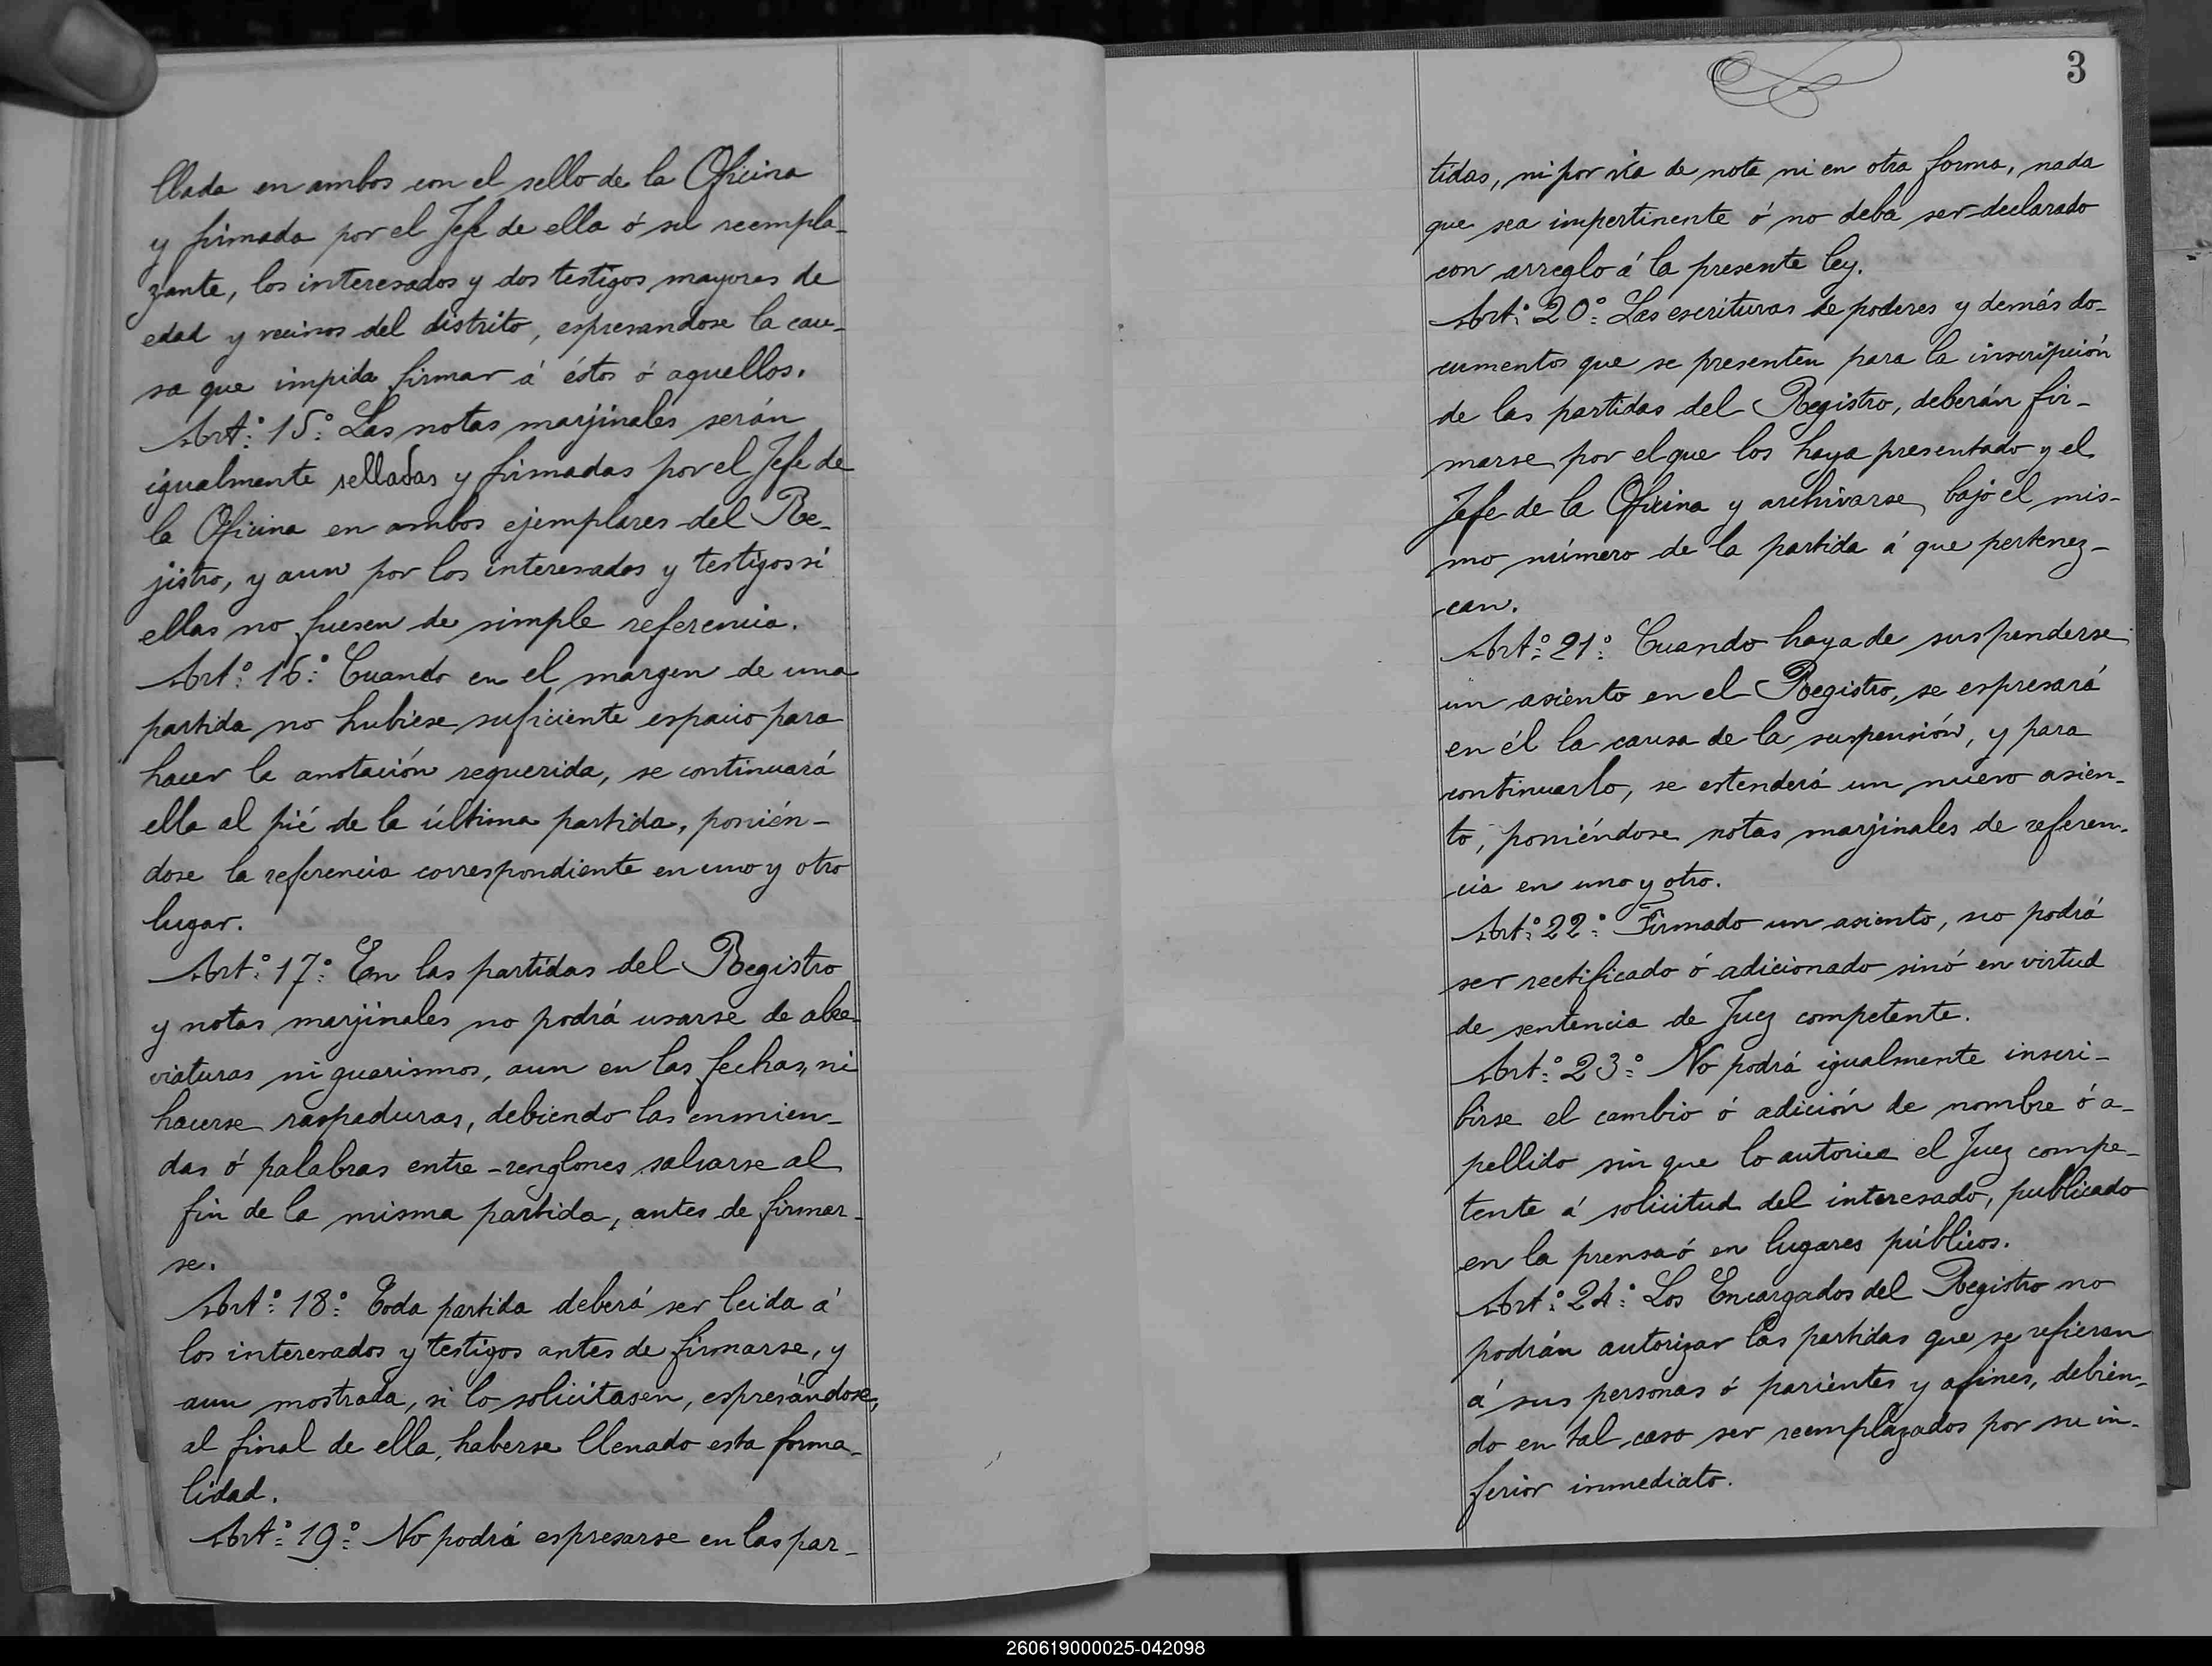 llada en ambos con el sello de la Oficina
y firmada por el Jefe de ella ó su reempla-
zante, los interesados y dos testigos mayores de
edad y vecinos del distrito, espresandose la cau-
sa que impida firmar á éstos ó aquellos.
Art.º 15.º Las notas marjinales serán
igualmente selladas y firmadas por el Jefe de
la Oficina en ambos ejemplares del Re-
jistro, y aun por los interesados y testigos si
ellas no fuesen de simple referencia.
Art.º 16.º Cuando en el margen de una
partida no hubiese suficiente espacio para
hacer la anotación requerida, se continuará
ella al pié de la última partida, ponién-
dose la referencia correspondiente en uno y otro
lugar.
Art.º 17.º En las partidas del Registro
y notas marjinales no podrá usarse de abre-
viaturas ni guarismos, aun en las fechas, ni
hacerse raspaduras, debiendo las enmien-
das ó palabras entre-renglones salvarse al
fin de la misma partida, antes de firmar-
se.
Art.º 18.º Toda partida deberá ser leida á
los interesados y testigos antes de firmarse, y
aun mostrada, si lo solicitasen, espresándose,
al final de ella, haberse llenado esta forma-
lidad.
Art.º 19.º No podrá espresarse en las par-
3
tidas, ni por vía de nota ni en otra forma, nada
que sea impertinente ó no deba ser declarado
con arreglo á la presente ley.
Art.º 20.º Las escrituras de poderes y demás do-
cumentos que se presenten para la inscripción
de las partidas del Registro, deberán fir-
marse por el que los haya presentado y el
Jefe de la Oficina y archivarse bajo el mis-
mo número de la partida á que pertenez-
can.
Art.º 21.º Cuando haya de suspenderse
un asiento en el Registro, se espresará
en él la causa de la suspensión, y para
continuarlo, se estenderá un nuevo asien-
to, poniéndose notas marjinales de referen-
cia en uno y otro.
Art.º 22.º Firmado un asiento, no podrá
ser rectificado ó adicionado sinó en virtud
de sentencia de Juez competente.
Art.º 23.º No podrá igualmente inscri-
birse el cambio ó adición de nombre ó a-
pellido sin que lo autorice el Juez compe-
tente á solicitud del interesado, publicado
en la prensa ó en lugares públicos.
Art.º 24.º Los Encargados del Registro no
podrán autorizar las partidas que se refieran
á sus personas ó parientes y afines, debien-
do en tal caso ser reemplazados por su in-
ferior inmediato.
260619000025-042098